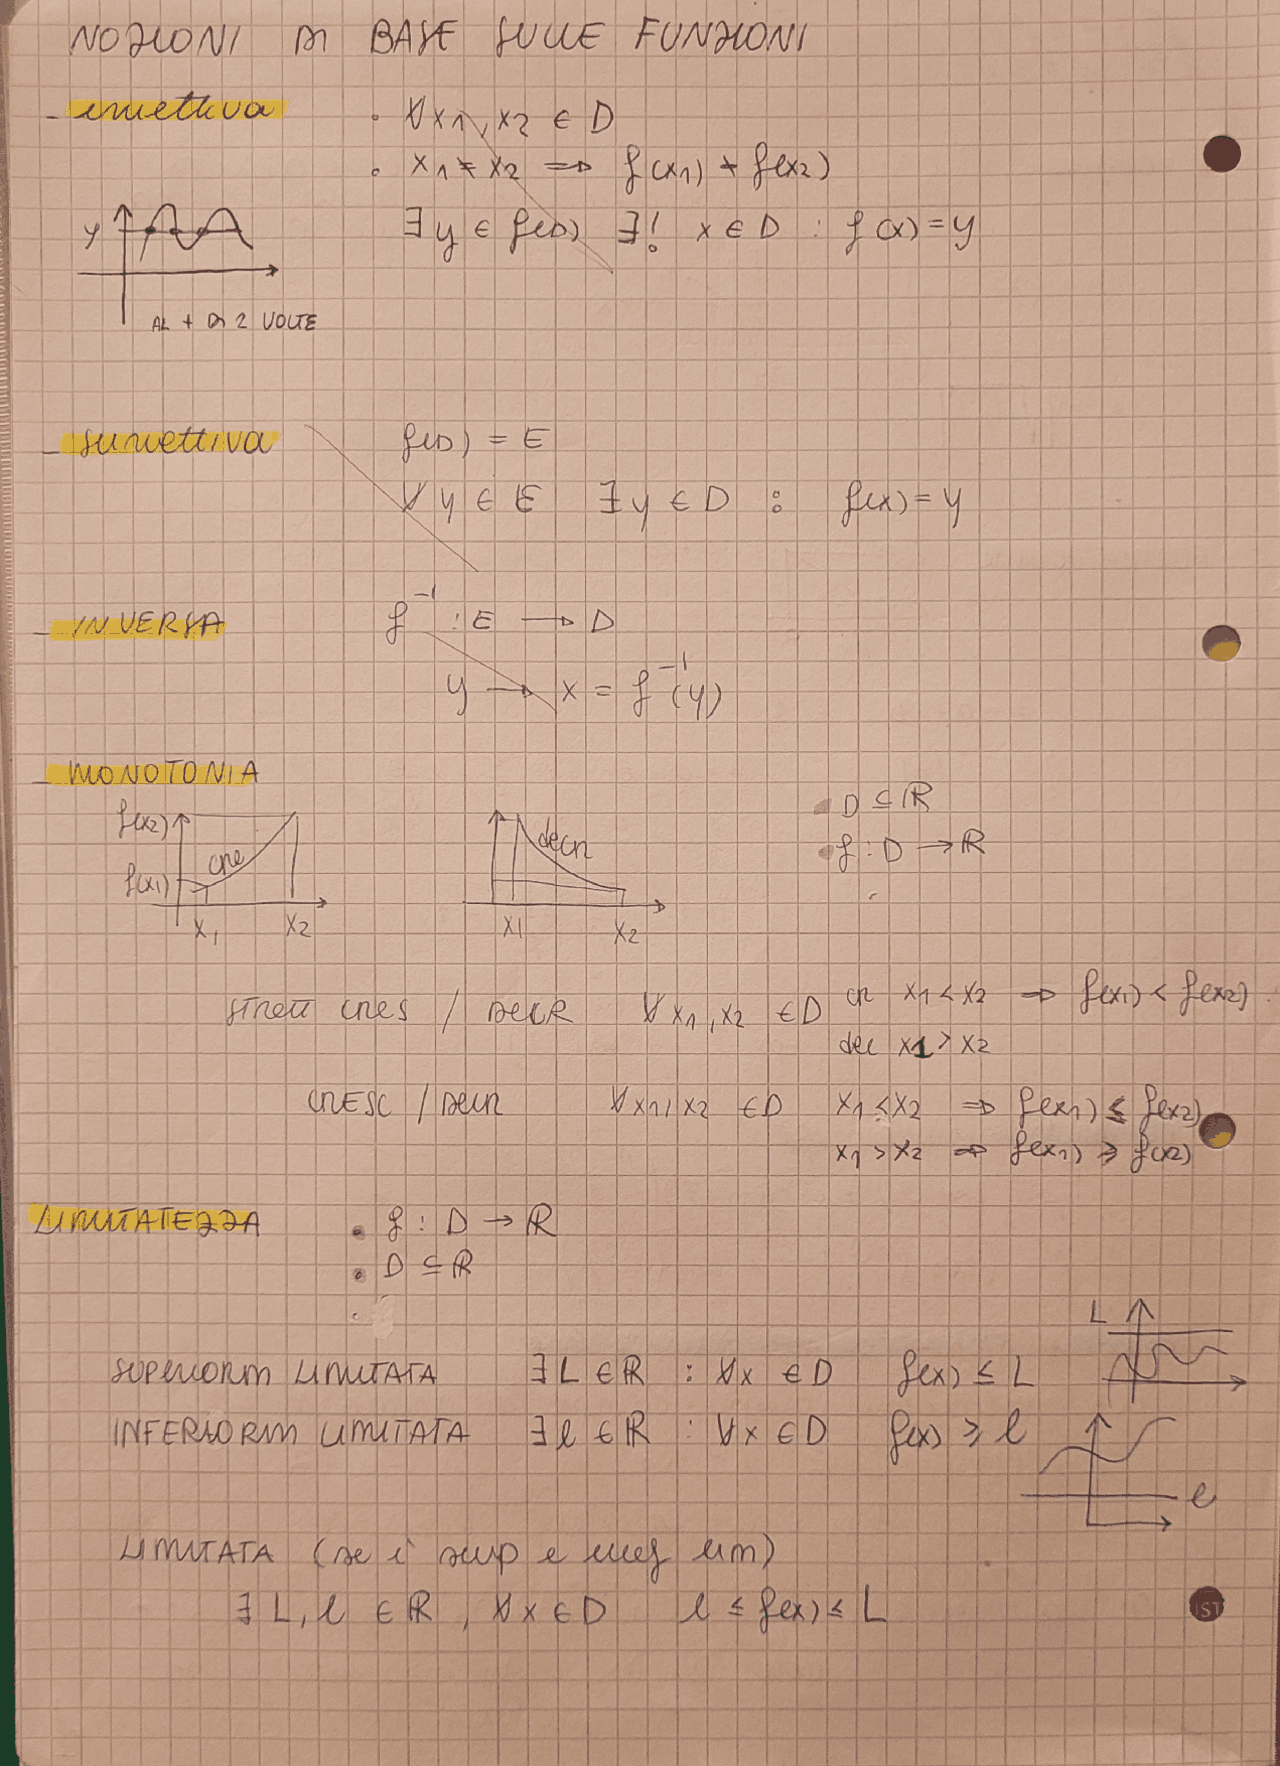 NOZIONI DI BASE SULLE FUNZIONI
- iniettiva
• ∀x1, x2 ∈ D
• x1 ≠ x2 ⇒ f(x1) ≠ f(x2)
∃y ∈ f(D) ∃! x ∈ D : f(x) = y
y
AL + DI 2 VOLTE
- suriettiva
f(D) = E
∀ y ∈ E ∃ y ∈ D : f(x) = y
- INVERSA
f⁻¹ : E → D
y → x = f⁻¹(y)
- MONOTONIA
f(x2)
f(x1)
cre
x1 x2
decr
x1 x2
• D ⊆ ℝ
• f : D → ℝ
strett cres / DECR ∀ x1, x2 ∈ D cr x1 < x2 ⇒ f(x1) < f(x2)
dec x1 > x2
CRESC / Decr ∀ x1, x2 ∈ D x1 ≤ x2 ⇒ f(x1) ≤ f(x2)
x1 > x2 ⇒ f(x1) ≥ f(x2)
LIMITATEZZA
• f : D → ℝ
• D ⊆ ℝ
SUPERIORM LIMITATA ∃ L ∈ ℝ : ∀x ∈ D f(x) ≤ L
L
INFERIORM LIMITATA ∃ l ∈ ℝ : ∀x ∈ D f(x) ≥ l
l
LIMITATA (se è sup e inf lim)
∃ L, l ∈ ℝ, ∀x ∈ D l ≤ f(x) ≤ L